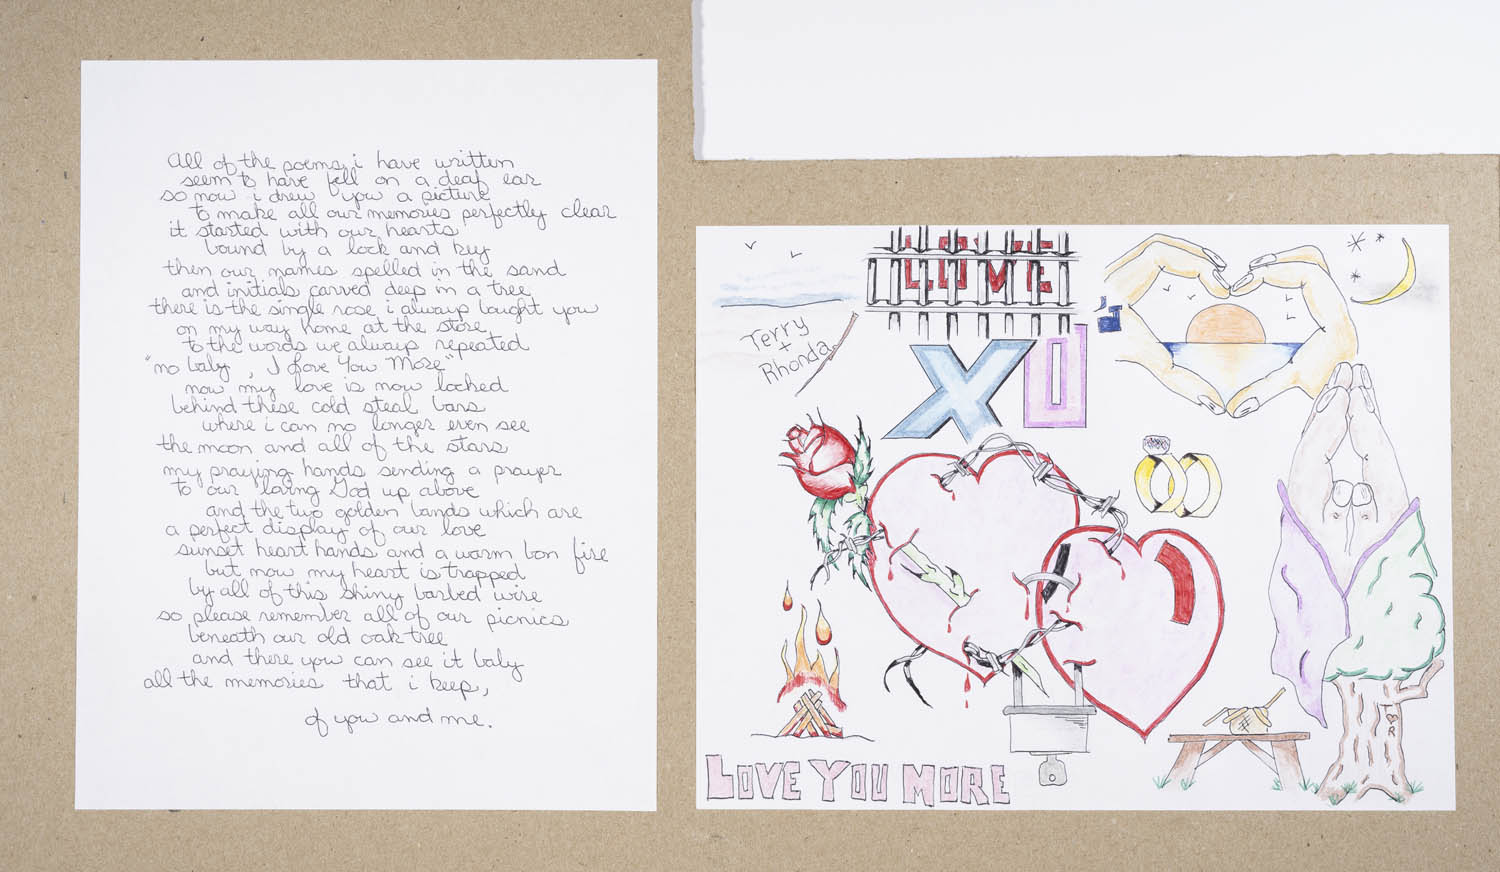 All of the poems i have written
seem to have fell on a deaf ear
so now i drew you a picture
to make all our memories perfectly clear
it started with our hearts
bound by a lock and key
then our names spelled in the sand
and initials carved deep in a tree
there is the single rose i always bought you
on my way home at the store
to the words we always repeated
"no baby, I Love You More"
now my love is now locked
behind these cold steal bars
where i can no longer even see
the moon and all of the stars
my praying hands sending a prayer
to our loving God up above
and the two golden bands which are
a perfect display of our love
sunset heart hands and a warm bon fire
but now my heart is trapped
by all of this shiny barbed wire
so please remember all of our picnics
beneath our old oak tree
and there you can see it baby
all the memories that i keep,
of you and me.
LOVE
Terry
+
Rhonda
XO
R
LOVE YOU MORE